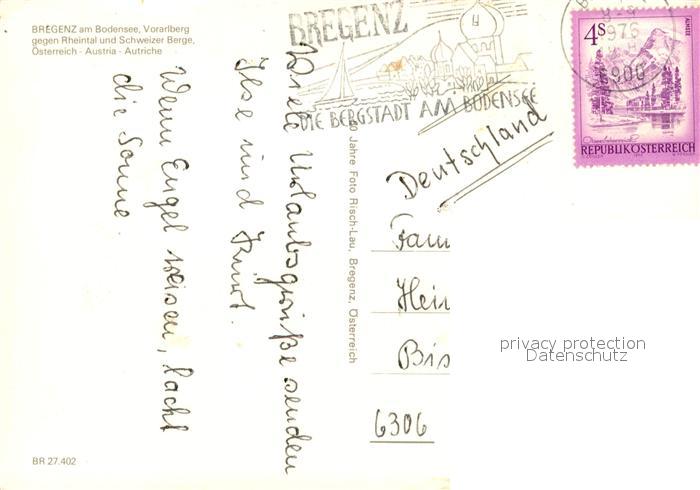 BREGENZ am Bodensee, Vorarlberg
gegen Rheintal und Schweizer Berge,
Österreich - Austria - Autriche
BREGENZ
DIE BERGSTADT AM BODENSEE
1976
6900
4S
ALMSEE
REPUBLIK ÖSTERREICH
Viele Urlaubsgrüße senden
Ilse und Kurt.
Wenn Engel reisen, lacht
die Sonne.
Jahre Foto Risch-Lau, Bregenz, Österreich
Deutschland
Fam
Hein
Bis
6306
privacy protection
Datenschutz
BR 27.402